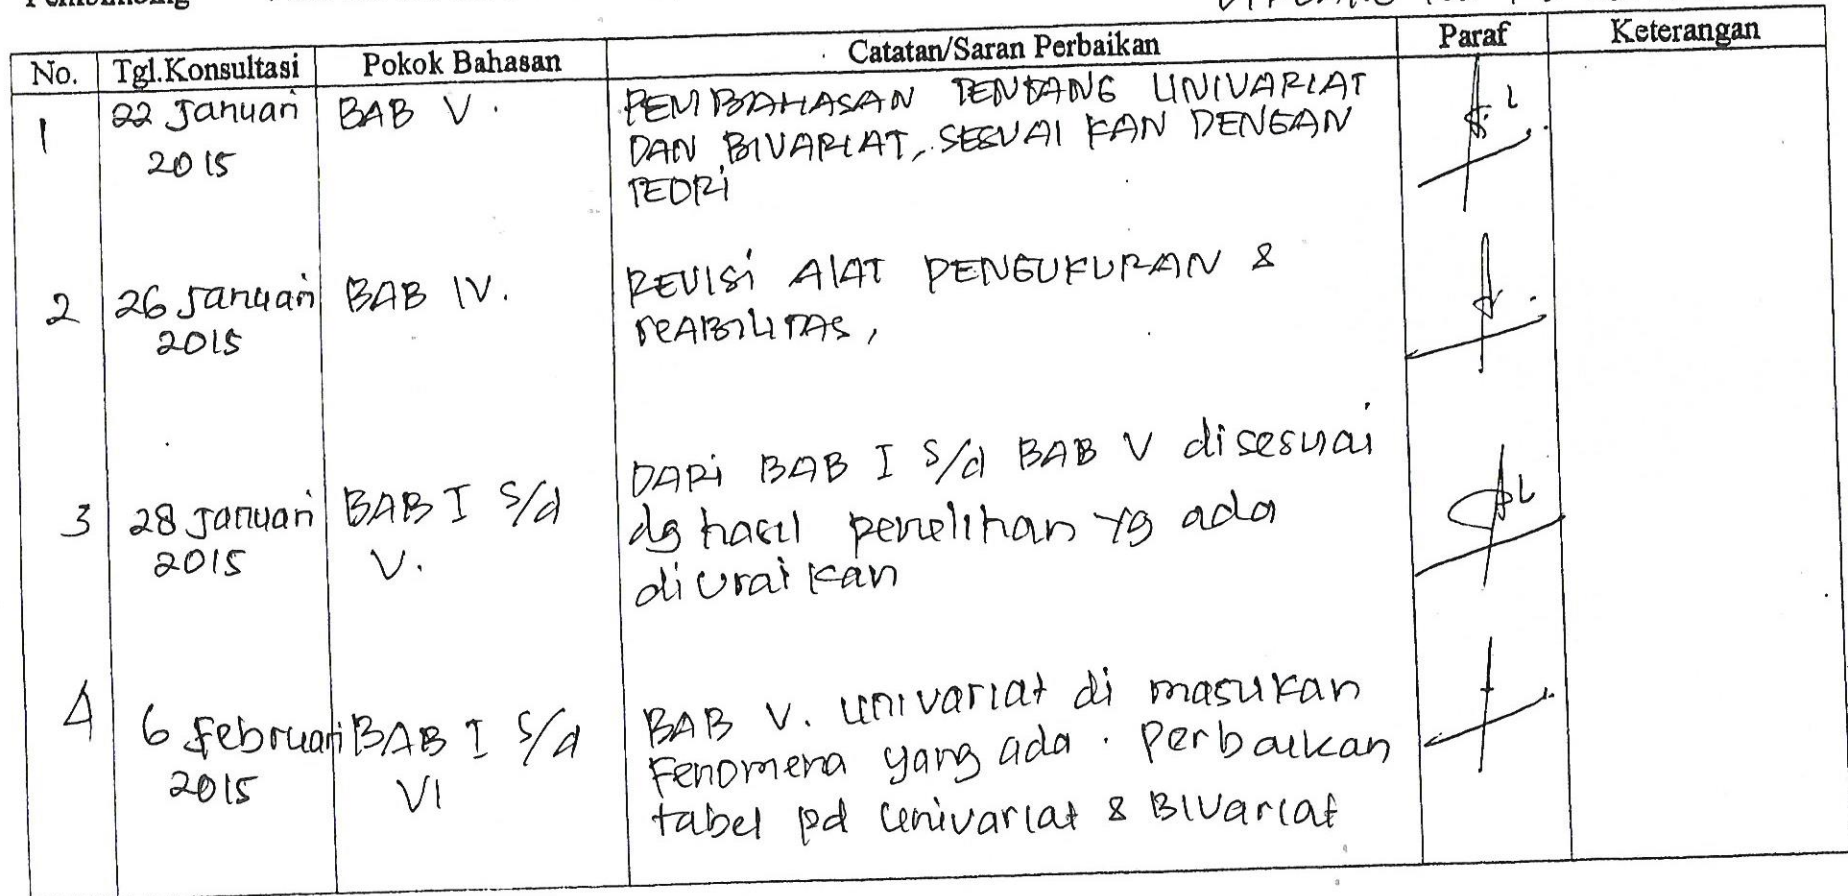 No. Tgl.Konsultasi Pokok Bahasan Catatan/Saran Perbaikan Paraf Keterangan
1 22 Januari BAB V. PEMBAHASAN TENTANG UNIVARIAT
2015 DAN BIVARIAT, SESUAI KAN DENGAN
TEORI
2 26 Januari BAB IV. REVISI AlAT PENGUKURAN &
2015 reABILITAS,
3 28 Januari BAB I S/d DARI BAB I S/d BAB V disesuai
2015 V. dg hasil penelitian yg ada
diuraikan
4 6 Februari BAB I S/d BAB V. Univariat di masukan
2015 VI Fenomena yang ada. Perbaikan
tabel pd Univariat & BIVariat